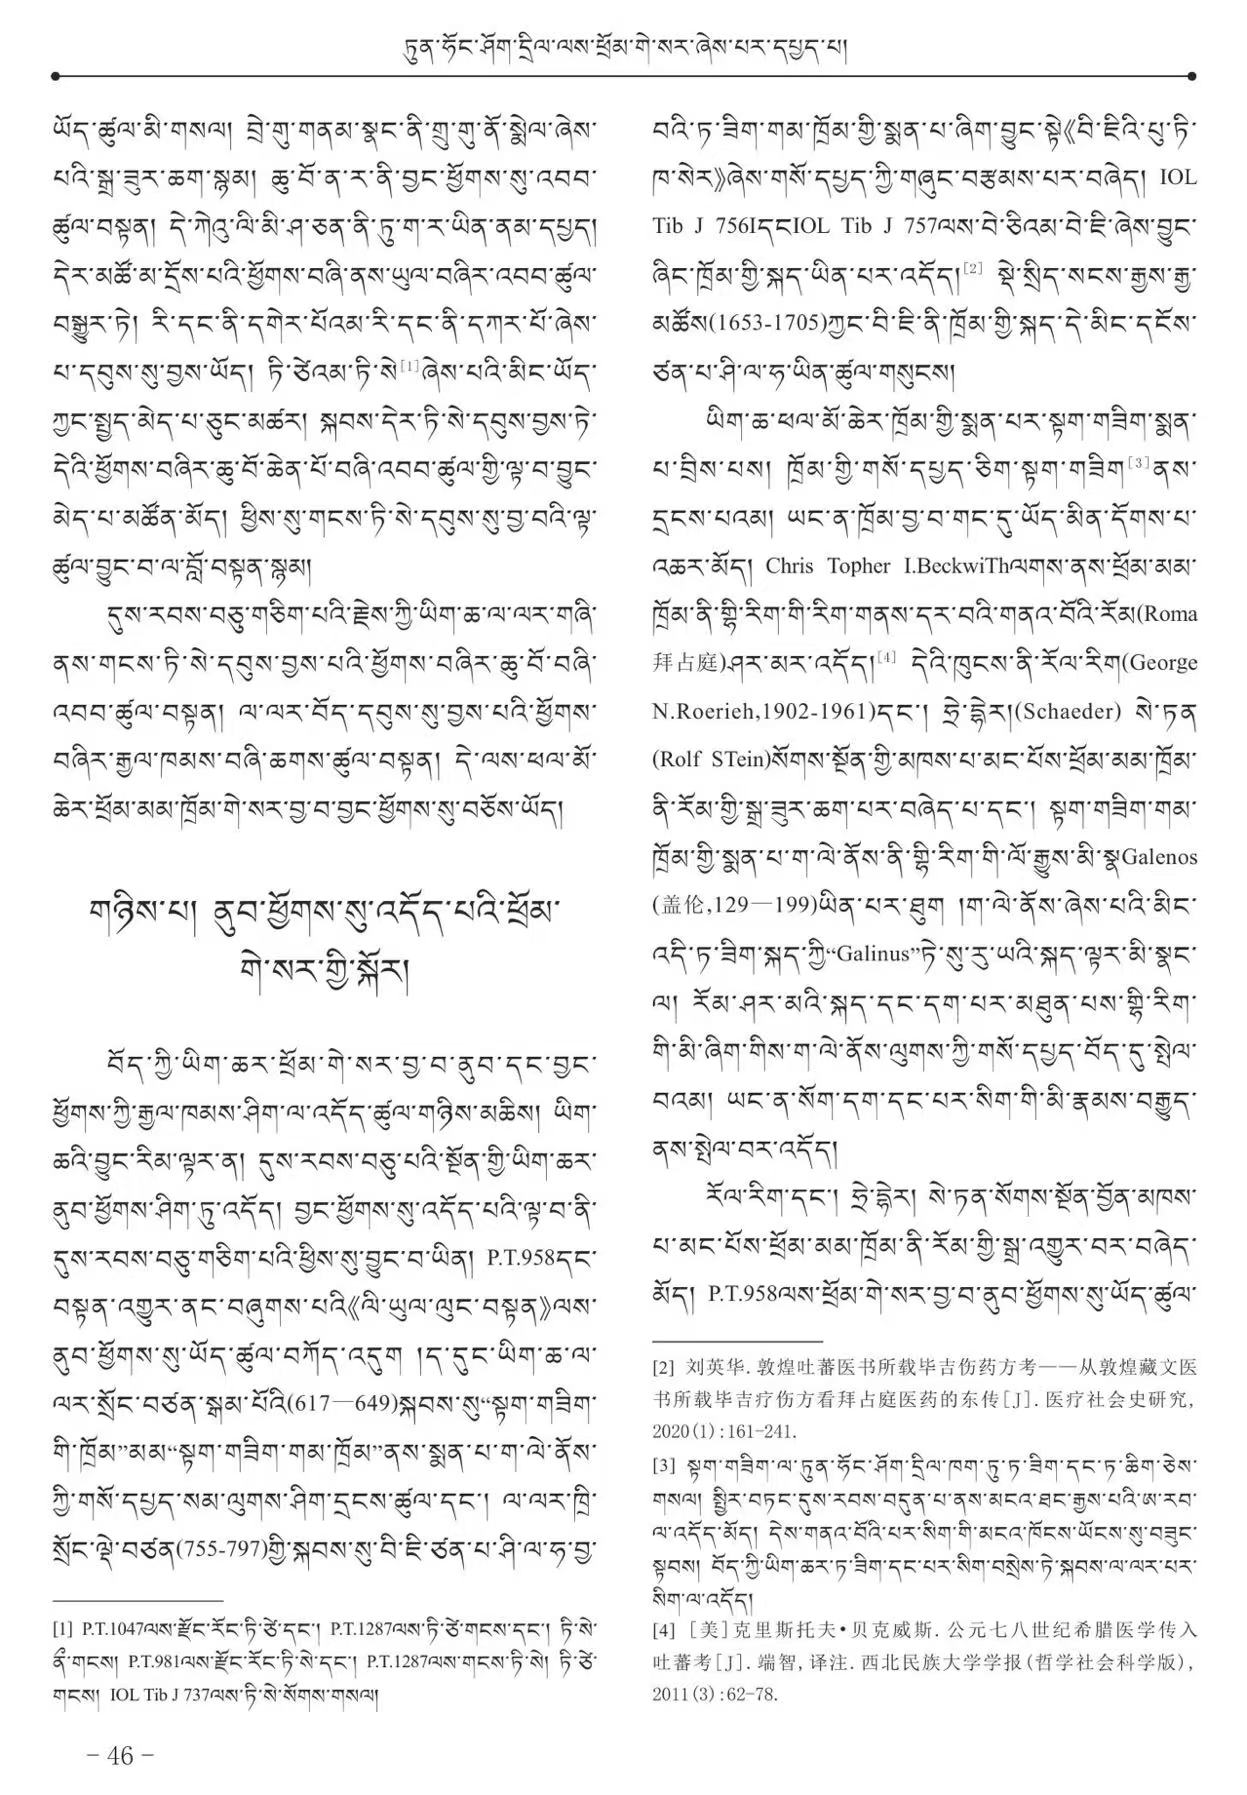 ཏུན་ཧོང་ཤོག་དྲིལ་ལས་ཕྲོམ་གེ་སར་ཞེས་པར་དཔྱད་པ།
ཡོད་ཚུལ་མི་གསལ། བྲེ་གུ་གནམ་སྣང་ནི་གྲུ་གུ་ནོ་སྨེལ་ཞེས་
པའི་སྒྲ་ཟུར་ཆག་སྙམ། ཆུ་བོ་ན་ར་ནི་བྱང་ཕྱོགས་སུ་འབབ་
ཚུལ་བསྟན། དེ་ཀེའུ་ལི་མི་ཤ་ཅན་ནི་ཏུ་ག་ར་ཡིན་ནམ་དཔྱད།
དེར་མཚོ་མ་དྲོས་པའི་ཕྱོགས་བཞི་ནས་ཡུལ་བཞིར་འབབ་ཚུལ་
བསྒྱུར་ཏེ། རི་དང་ནི་དགེར་པོའམ་རི་དང་ནི་དཀར་པོ་ཞེས་
པ་དབུས་སུ་བྱས་ཡོད། ཏི་ཙེའམ་ཏི་སེ[1]ཞེས་པའི་མིང་ཡོད་
ཀྱང་སྤྱད་མེད་པ་ཅུང་མཚར། སྐབས་དེར་ཏི་སེ་དབུས་བྱས་ཏེ་
དེའི་ཕྱོགས་བཞིར་ཆུ་བོ་ཆེན་པོ་བཞི་འབབ་ཚུལ་གྱི་ལྟ་བ་བྱུང་
མེད་པ་མཚོན་མོད། ཕྱིས་སུ་གངས་ཏི་སེ་དབུས་སུ་བྱ་བའི་ལྟ་
ཚུལ་བྱུང་བ་ལ་བློ་བསྟན་སྙམ།
དུས་རབས་བཅུ་གཅིག་པའི་རྗེས་ཀྱི་ཡིག་ཆ་ལ་ལར་གཞི་
ནས་གངས་ཏི་སེ་དབུས་བྱས་པའི་ཕྱོགས་བཞིར་ཆུ་བོ་བཞི་
འབབ་ཚུལ་བསྟན། ལ་ལར་བོད་དབུས་སུ་བྱས་པའི་ཕྱོགས་
བཞིར་རྒྱལ་ཁམས་བཞི་ཆགས་ཚུལ་བསྟན། དེ་ལས་ཕལ་མོ་
ཆེར་ཕྲོམ་མམ་ཁྲོམ་གེ་སར་བྱ་བ་བྱང་ཕྱོགས་སུ་བཅོས་ཡོད།
གཉིས་པ། ནུབ་ཕྱོགས་སུ་འདོད་པའི་ཕྲོམ་
གེ་སར་གྱི་སྐོར།
བོད་ཀྱི་ཡིག་ཆར་ཕྲོམ་གེ་སར་བྱ་བ་ནུབ་དང་བྱང་
ཕྱོགས་ཀྱི་རྒྱལ་ཁམས་ཤིག་ལ་འདོད་ཚུལ་གཉིས་མཆིས། ཡིག་
ཆའི་བྱུང་རིམ་ལྟར་ན། དུས་རབས་བཅུ་པའི་སྔོན་གྱི་ཡིག་ཆར་
ནུབ་ཕྱོགས་ཤིག་ཏུ་འདོད། བྱང་ཕྱོགས་སུ་འདོད་པའི་ལྟ་བ་ནི་
དུས་རབས་བཅུ་གཅིག་པའི་ཕྱིས་སུ་བྱུང་བ་ཡིན། P.T.958དང་
བསྟན་འགྱུར་ནང་བཞུགས་པའི《ལི་ཡུལ་ལུང་བསྟན》ལས་
ནུབ་ཕྱོགས་སུ་ཡོད་ཚུལ་བཀོད་འདུག །ད་དུང་ཡིག་ཆ་ལ་
ལར་སྲོང་བཙན་སྒམ་པོའི(617—649)སྐབས་སུ“སྟག་གཟིག་
གི་ཁྲོམ”མམ“སྟག་གཟིག་གམ་ཁྲོམ”ནས་སྨན་པ་ག་ལེ་ནོས་
ཀྱི་གསོ་དཔྱད་སམ་ལུགས་ཤིག་དྲངས་ཚུལ་དང་། ལ་ལར་ཁྲི་
སྲོང་ལྡེ་བཙན(755-797)གྱི་སྐབས་སུ་བི་ཇི་ཙན་པ་ཤི་ལ་ཧ་བྱ་
[1] P.T.1047ལས་རྫོང་རོང་ཏི་ཙེ་དང་། P.T.1287ལས་ཏི་ཙེ་གངས་དང་། ཏི་སེ་
ནི་གངས། P.T.981ལས་རྫོང་རོང་ཏི་སེ་དང་། P.T.1287ལས་གངས་ཏི་སེ། ཏི་ཙེ་
གངས། IOL Tib J 737ལས་ཏི་སེ་སོགས་གསལ།
– 46 –
བའི་ཏ་ཟིག་གམ་ཁྲོམ་གྱི་སྨན་པ་ཞིག་བྱུང་སྟེ《བི་ཇིའི་པུ་ཏི་
ཁ་སེར》ཞེས་གསོ་དཔྱད་ཀྱི་གཞུང་བརྩམས་པར་བཞེད། IOL
Tib J 756IདངIOL Tib J 757ལས་བེ་ཅིའམ་བེ་ཇི་ཞེས་བྱུང་
ཞིང་ཁྲོམ་གྱི་སྐད་ཡིན་པར་འདོད།[2] སྡེ་སྲིད་སངས་རྒྱས་རྒྱ་
མཚོས(1653-1705)ཀྱང་བི་ཇི་ནི་ཁྲོམ་གྱི་སྐད་དེ་མིང་དངོས་
ཙན་པ་ཤི་ལ་ཧ་ཡིན་ཚུལ་གསུངས།
ཡིག་ཆ་ཕལ་མོ་ཆེར་ཁྲོམ་གྱི་སྨན་པར་སྟག་གཟིག་སྨན་
པ་བྲིས་པས། ཁྲོམ་གྱི་གསོ་དཔྱད་ཅིག་སྟག་གཟིག[3]ནས་
དྲངས་པའམ། ཡང་ན་ཁྲོམ་བྱ་བ་གང་དུ་ཡོད་མིན་དོགས་པ་
འཆར་མོད། Chris Topher I.BeckwiThལགས་ནས་ཕྲོམ་མམ་
ཁྲོམ་ནི་གྷི་རིག་གི་རིག་གནས་དར་བའི་གནའ་བོའི་རོམ(Roma
拜占庭)ཤར་མར་འདོད།[4] དེའི་ཁུངས་ནི་རོལ་རིག(George
N.Roerieh,1902-1961)དང་། ཧྲེ་ཌྷེར།(Schaeder) སེ་ཏན
(Rolf STein)སོགས་སྔོན་གྱི་མཁས་པ་མང་པོས་ཕྲོམ་མམ་ཁྲོམ་
ནི་རོམ་གྱི་སྒྲ་ཟུར་ཆག་པར་བཞེད་པ་དང་། སྟག་གཟིག་གམ་
ཁྲོམ་གྱི་སྨན་པ་ག་ལེ་ནོས་ནི་གྷི་རིག་གི་ལོ་རྒྱུས་མི་སྣGalenos
(盖伦,129—199)ཡིན་པར་ཐུག །ག་ལེ་ནོས་ཞེས་པའི་མིང་
འདི་ཏ་ཟིག་སྐད་ཀྱི“Galinus”ཏེ་སུ་རུ་ཡའི་སྐད་ལྟར་མི་སྣང་
ལ། རོམ་ཤར་མའི་སྐད་དང་དག་པར་མཐུན་པས་གྷི་རིག་
གི་མི་ཞིག་གིས་ག་ལེ་ནོས་ལུགས་ཀྱི་གསོ་དཔྱད་བོད་དུ་སྤེལ་
བའམ། ཡང་ན་སོག་དག་དང་པར་སིག་གི་མི་རྣམས་བརྒྱུད་
ནས་སྤེལ་བར་འདོད།
རོལ་རིག་དང་། ཧྲེ་ཌྷེར། སེ་ཏན་སོགས་སྔོན་བྱོན་མཁས་
པ་མང་པོས་ཕྲོམ་མམ་ཁྲོམ་ནི་རོམ་གྱི་སྒྲ་འགྱུར་བར་བཞེད་
མོད། P.T.958ལས་ཕྲོམ་གེ་སར་བྱ་བ་ནུབ་ཕྱོགས་སུ་ཡོད་ཚུལ་
[2] 刘英华. 敦煌吐蕃医书所载毕吉伤药方考——从敦煌藏文医
书所载毕吉疗伤方看拜占庭医药的东传[J]. 医疗社会史研究,
2020(1):161-241.
[3] སྟག་གཟིག་ལ་ཏུན་ཧོང་ཤོག་དྲིལ་ཁག་ཏུ་ཏ་ཟིག་དང་ཏ་ཆིག་ཅེས་
གསལ། སྤྱིར་བཏང་དུས་རབས་བདུན་པ་ནས་མངའ་ཐང་རྒྱས་པའི་ཨ་རབ་
ལ་འདོད་མོད། དེས་གནའ་བོའི་པར་སིག་གི་མངའ་ཁོངས་ཡོངས་སུ་བཟུང་
སྟབས། བོད་ཀྱི་ཡིག་ཆར་ཏ་ཟིག་དང་པར་སིག་བསྲེས་ཏེ་སྐབས་ལ་ལར་པར་
སིག་ལ་འདོད།
[4] [美]克里斯托夫•贝克威斯. 公元七八世纪希腊医学传入
吐蕃考[J]. 端智,译注. 西北民族大学学报(哲学社会科学版),
2011(3):62-78.